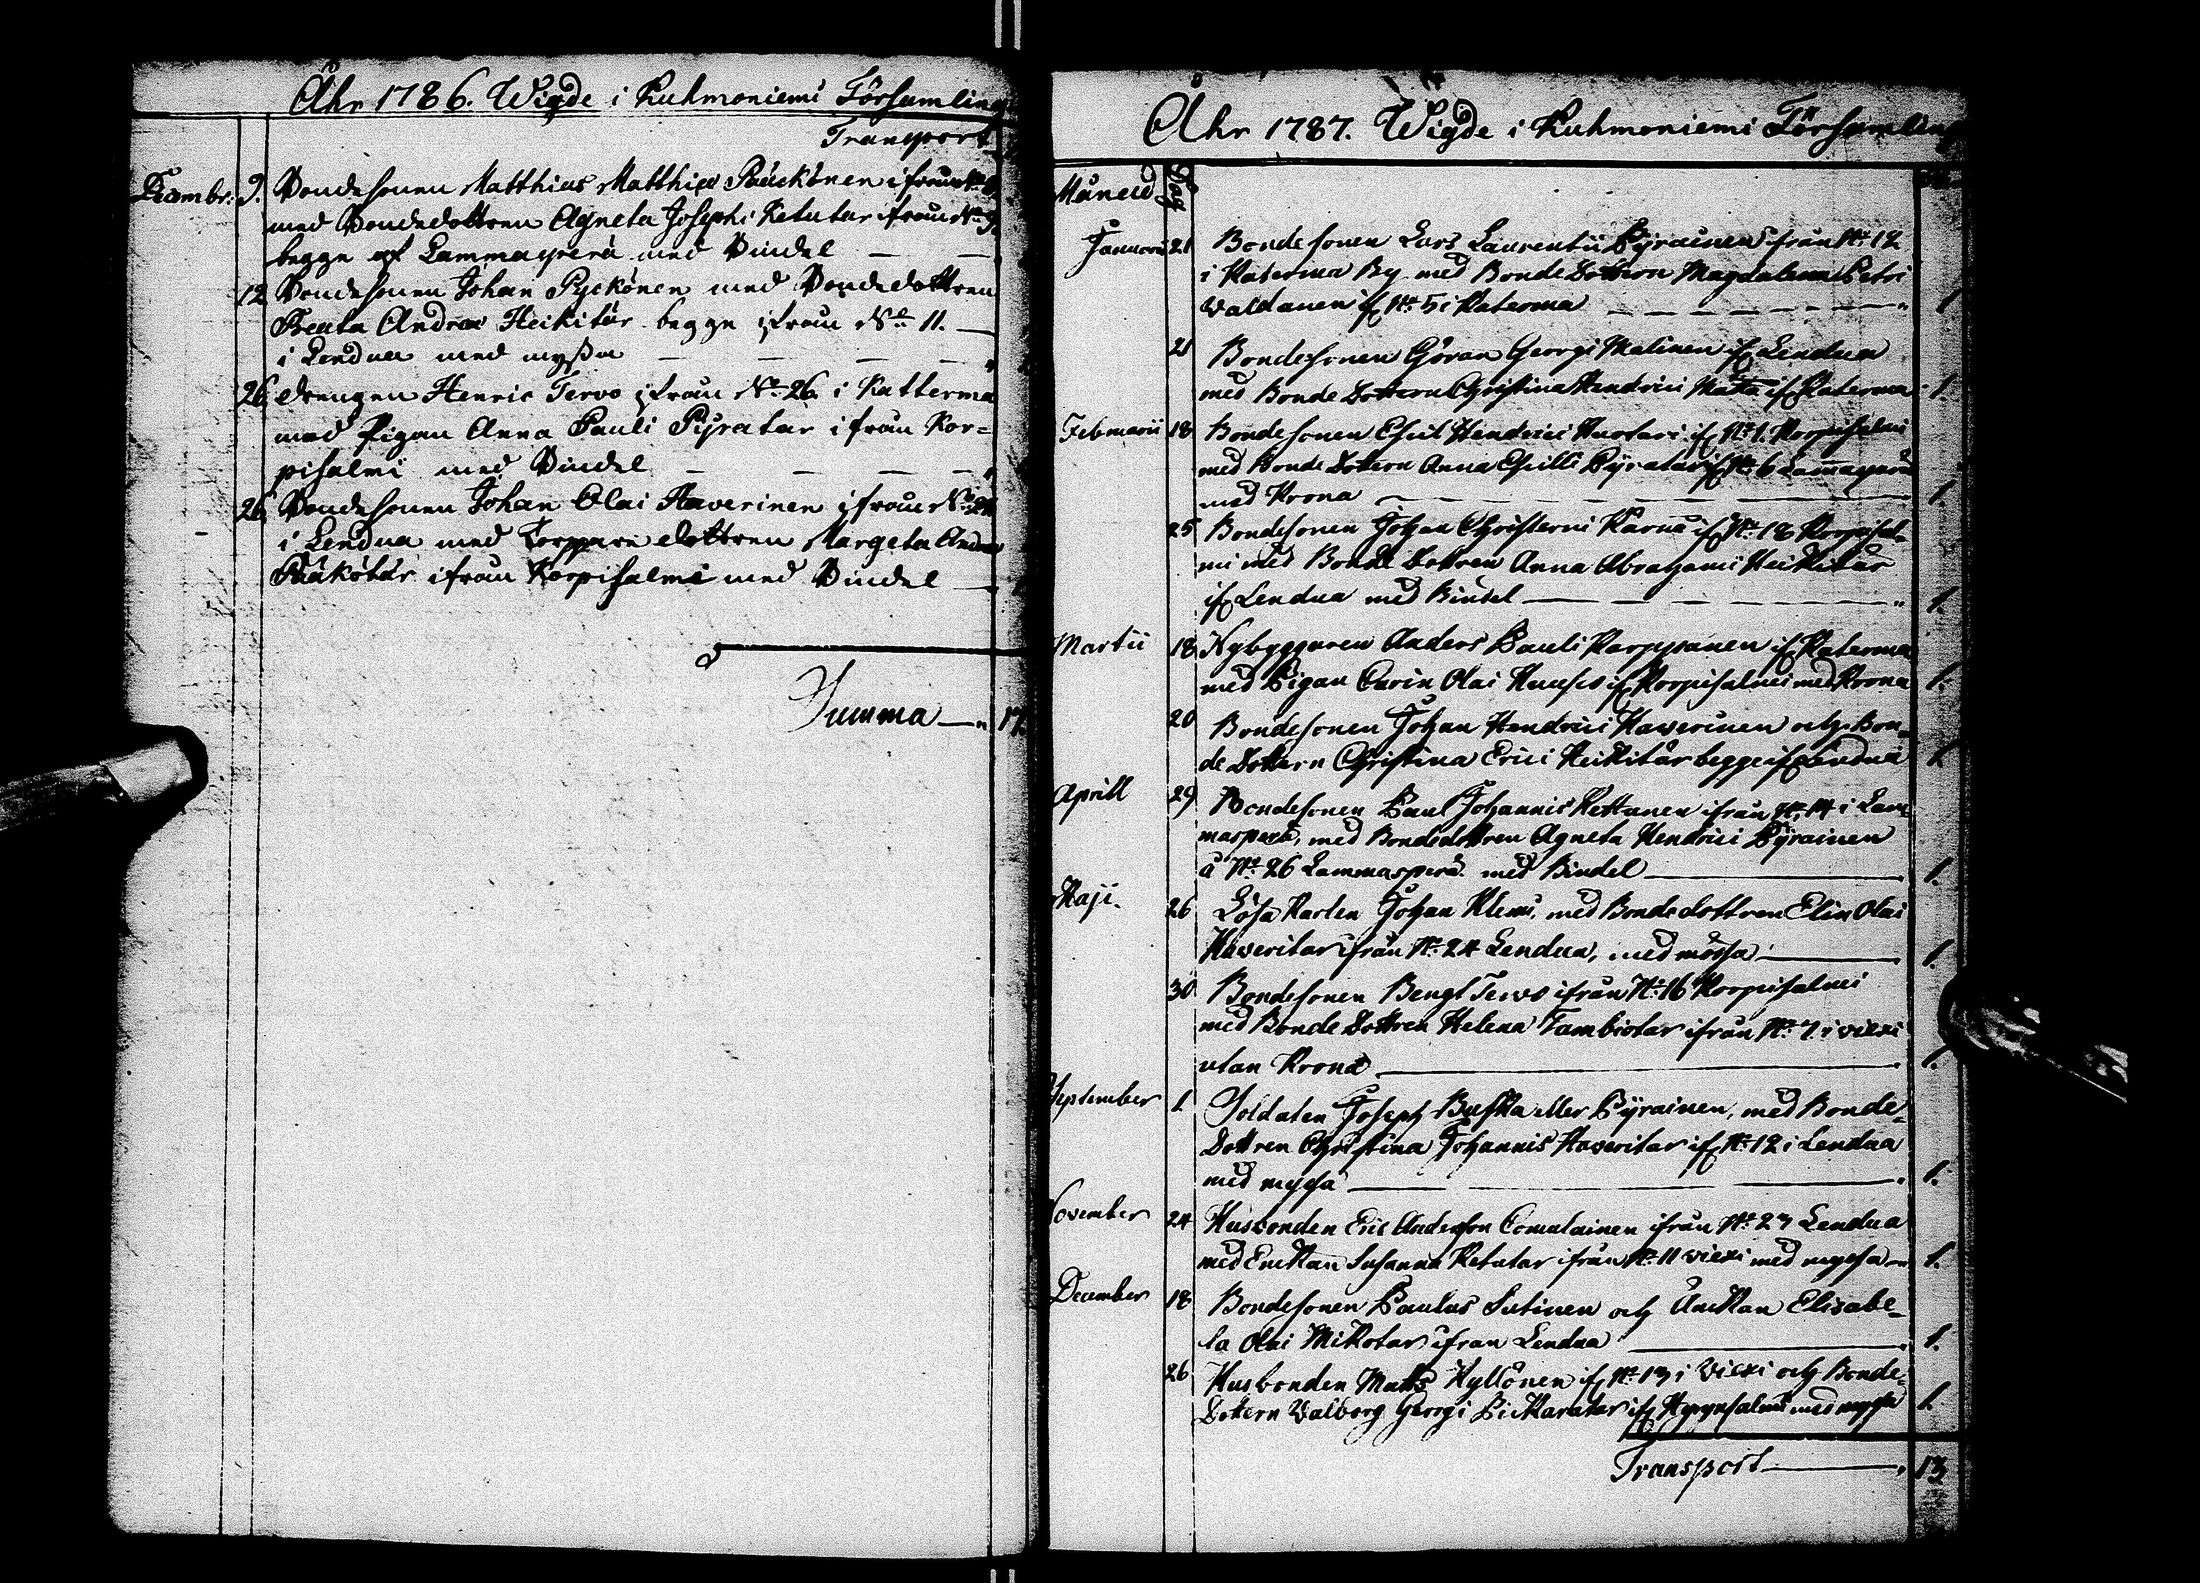 Åhr 1786. Wigde i Kuhmoniemi Församling
Transport
Decembr: 9. Bondesonen Matthias Matthiæ Pääckönen ifrån No
med Bondedottren Agneta Josephi Ketutar ifrån No 9.
begge af Lammasperä med Bindel
12 Bondesonen Johan Pyckönen med Bondedottren
Breata Andreæ Heikitär begge ifrån No 11.
i Lendua med myssa
26 drengen Henric Tervo ifrån No 26 i Katterma
med Pigan Anna Pauli Pyratar ifrån Kor=
pisalmi med Bindel
26 Bondesonen Johan Olai Haverinen ifrån No 24
i Lendua med Torppare dottren Margeta Andreæ
Räkötär ifrån Korpisalmi med Bindel
Summa 17.
Åhr 1787. Wigde i Kuhmoniemi Församling
Månad Dag
Januarii 21 Bondesonen Lars Laurentii Pyrainen ifrån No 12
i Katerma By med Bonde Dottren Magdalena Petri
Valdanen if No 5 i Katerma 1
21 Bondesonen Göran Georgi Malinen if Lendua
med Bonde Dottern Christina Hendrici Mata if Katerma 1.
Februarii 18 Bondesonen Eskil Hendrici Huotari if No 1. Korpisalmi
med Bonde Dottern Anna Eskilli Pyratar if No 6 Lammasperä
med Krona 1.
25 Bondesonen Johan Christerni Karnä if No 18 Korpisal=
mi med Bonde Dottren Anna Abrahami Heikitär
if Lendua med Bindel 1.
Martii 18 Nybyggaren Anders Pauli Karppanen if Katerma
med Pigan Carin Olai Huusko if Korpisalmi med Krona 1.
20 Bondesonen Johan Hendrici Hawerinen och Bon=
de Dottern Christina Erici Heikitär begge if Lendua 1
Aprill 29 Bondesonen Paul Johannis Kettunen ifrån No 14 i Lam=
masperä, med Bondedottren Agneta Hendrici Pyrainen
å No 26 Lammasperä med Bindel 1.
Maji. 26 Lösa Karlen Johan Klemi, med Bondedottren Elin Olai
Haveritar ifrån No 24 Lendua, med mössa 1.
30 Bondesonen Bengt Tervo ifrån No 16 Korpisalmi
med Bonde Dottren Helena Tambiotar ifrån No 7. i viexi
utan Krona 1.
September 1 Soldaten Joseph Buska eller Pyrainen, med Bonde=
Dottren Christina Johannis Haveritar if No 12 i Lendua
med myssa 1.
November 24 Husbonden Eric Andersson Comulainen ifrån No 23 Lendua
med Enckan Susanna Ketutar ifrån No 11 viexi med myssa 1.
December 18 Bondesonen Paulus Sutinen och Änckan Elisabe=
ta Olai Mikotar ifran Lendua 1.
26 Husbonden Matts Kyllönen if No 13 i Viexi och Bonde=
Dottern Valborg Georgi Pickaratar if Hyrynsalmi med myssa 1
Transport 13